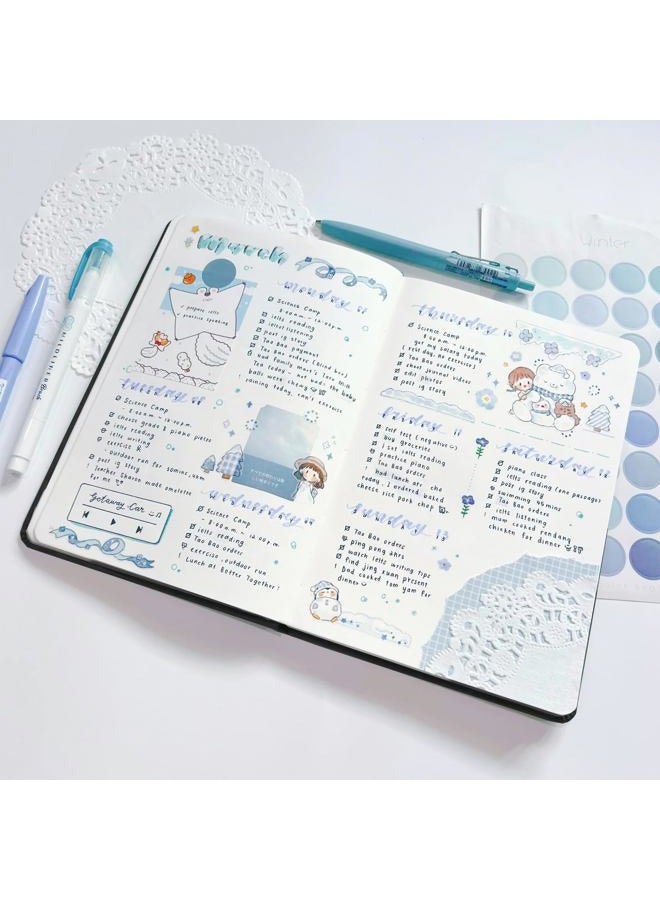 March
monday
Science Camp
8:00am - 12:00pm
ielts reading
ielts listening
post ig story
Tao Bao payment
Tao Bao orders
had family
prepare ielts
practice speaking
tuesday
Science Camp
8:00am - 12:00pm
choose grade 8 piano pieces
ielts reading
ielts writing
exercise
outdoor run for 30mins, 4km
post ig story
! teacher Sharon made omelette
for me
Getaway Car
wednesday
Science Camp
8:00am - 12:00pm
ielts reading
Tao Bao orders
exercise: outdoor run
! Lunch at Better Together!
thursday
Science Camp
8:00am - 12:00pm
got my salary today
rest day, no exercise
Tao Bao orders
shoot journal videos
edit photos
post ig story
friday 11
self test (negative)
buy groceries
ielts reading
practice piano
Tao Bao orders
! had lunch at
today, I ordered baked
cheese rice pork chop
saturday 12
piano class
ielts reading (one passage)
post ig story
swimming
ielts listening
mum cooked rendang
chicken for dinner
sunday 13
Tao Bao orders
ping pong 2hrs
watch ielts writing tips
find jing xuan present
! Dad cooked tom yam for
dinner
Winter